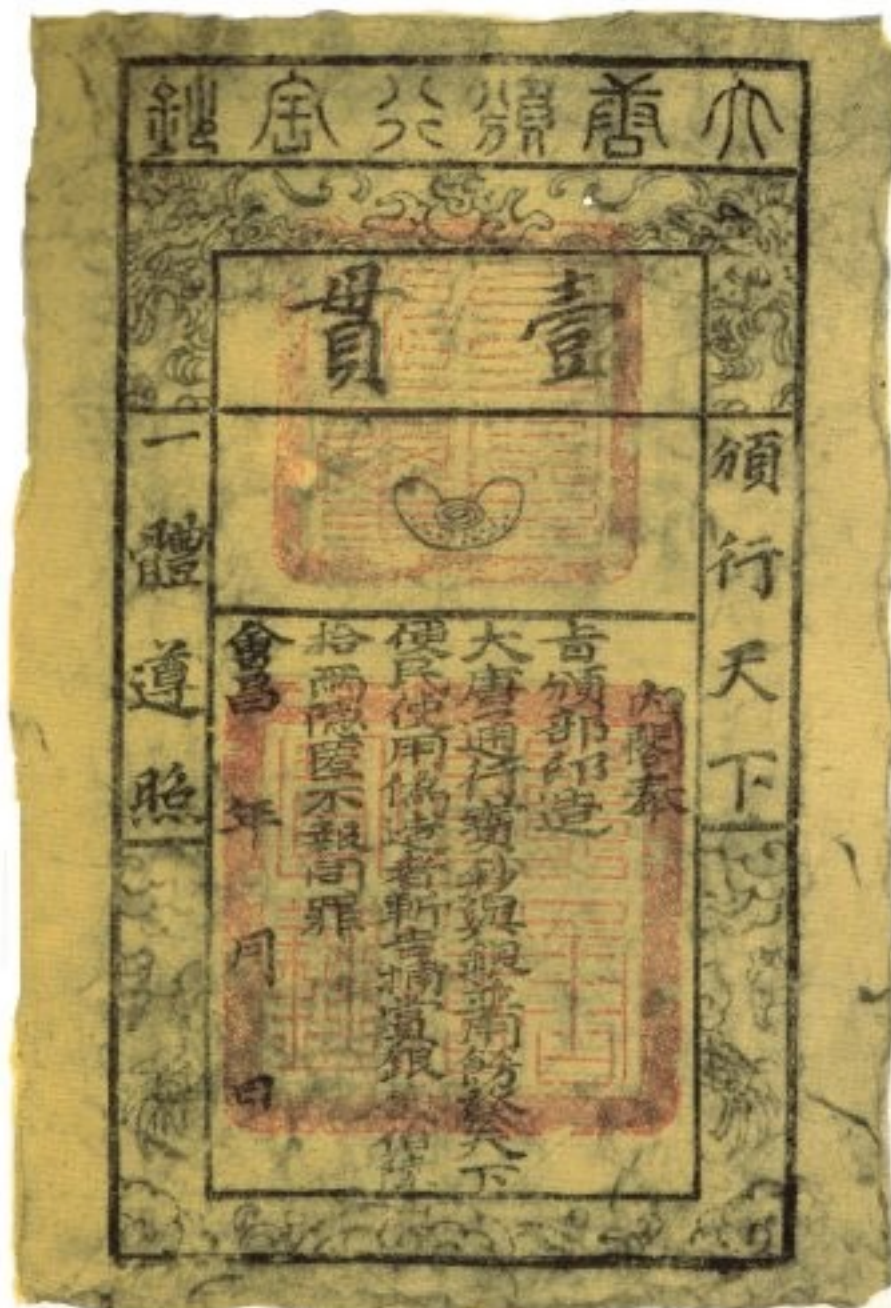 大唐頒行寶鈔
壹貫
頒行天下
一體遵照
內閣奉
旨頒部印造
大唐通行寶鈔與銀並用頒發天下
便民使用偽造者斬告捕賞銀
拾兩隱匿不報同罪
會昌 年 月 日